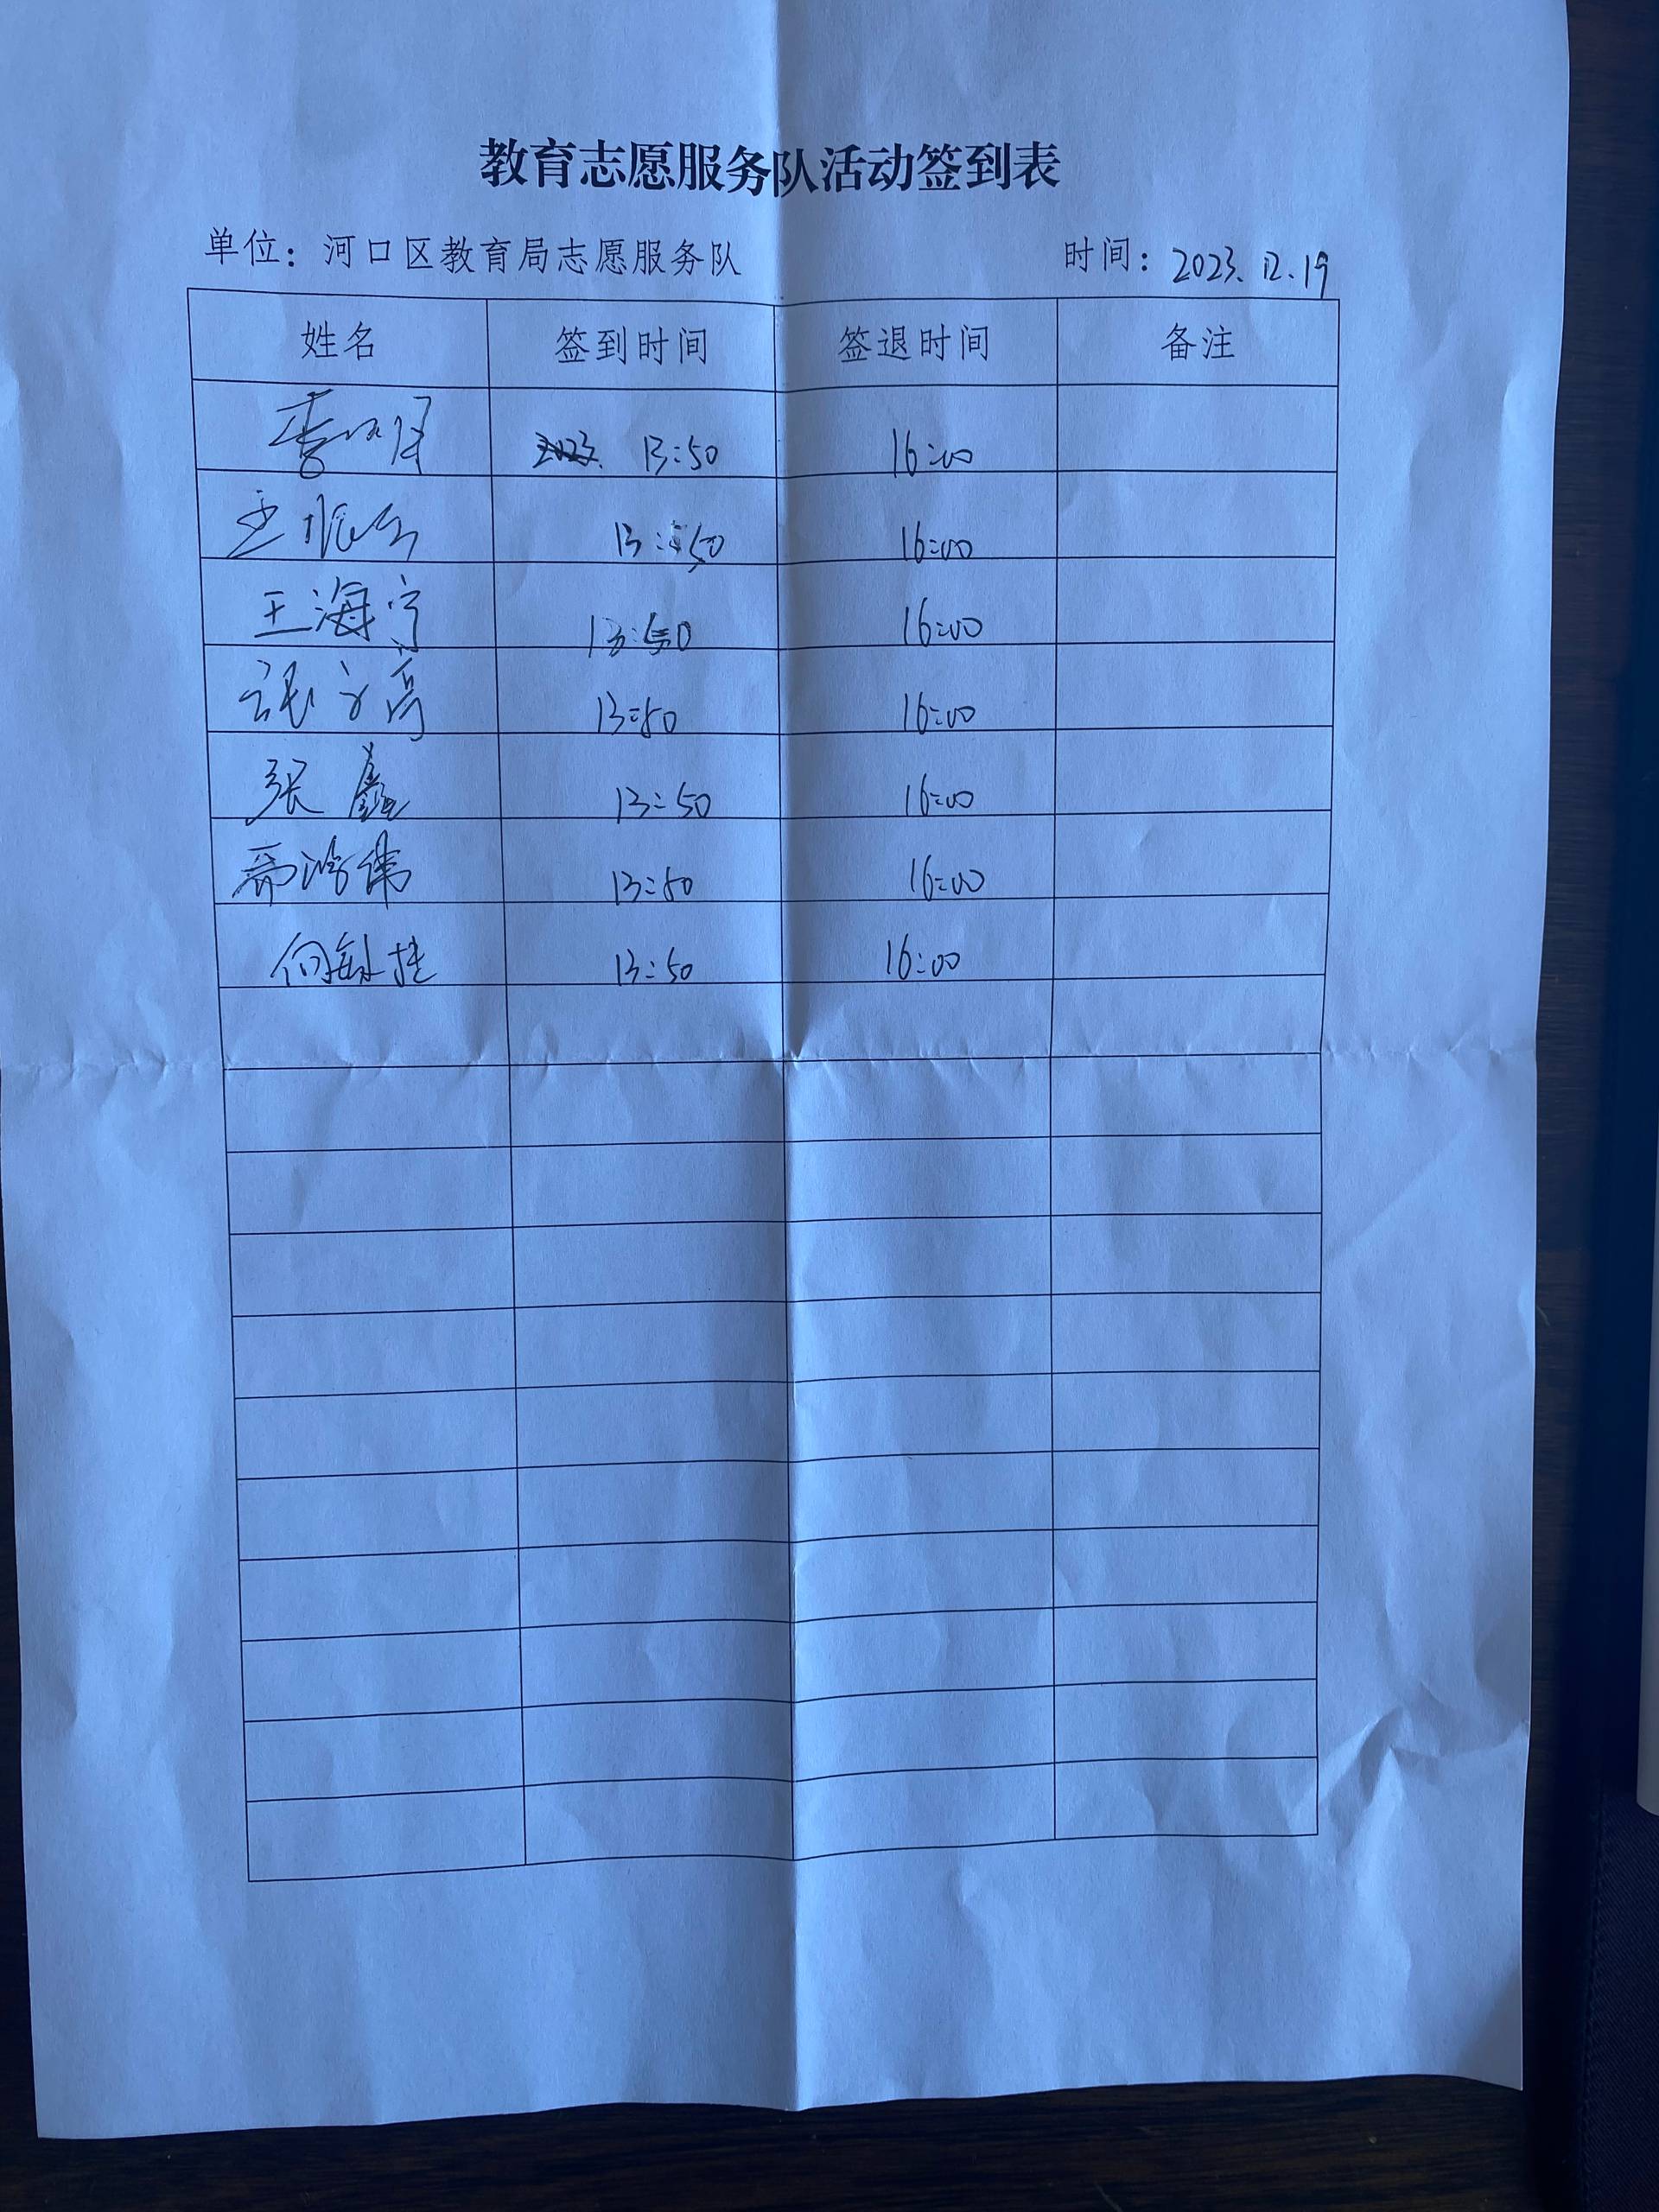 教育志愿服务队活动签到表
单位：河口区教育局志愿服务队 时间：2023.12.19
姓名 签到时间 签退时间 备注
13:50 16:00
13:50 16:00
王海宁 13:50 16:00
张文亮 13:50 16:00
张鑫 13:50 16:00
13:50 16:00
何敏捷 13:50 16:00